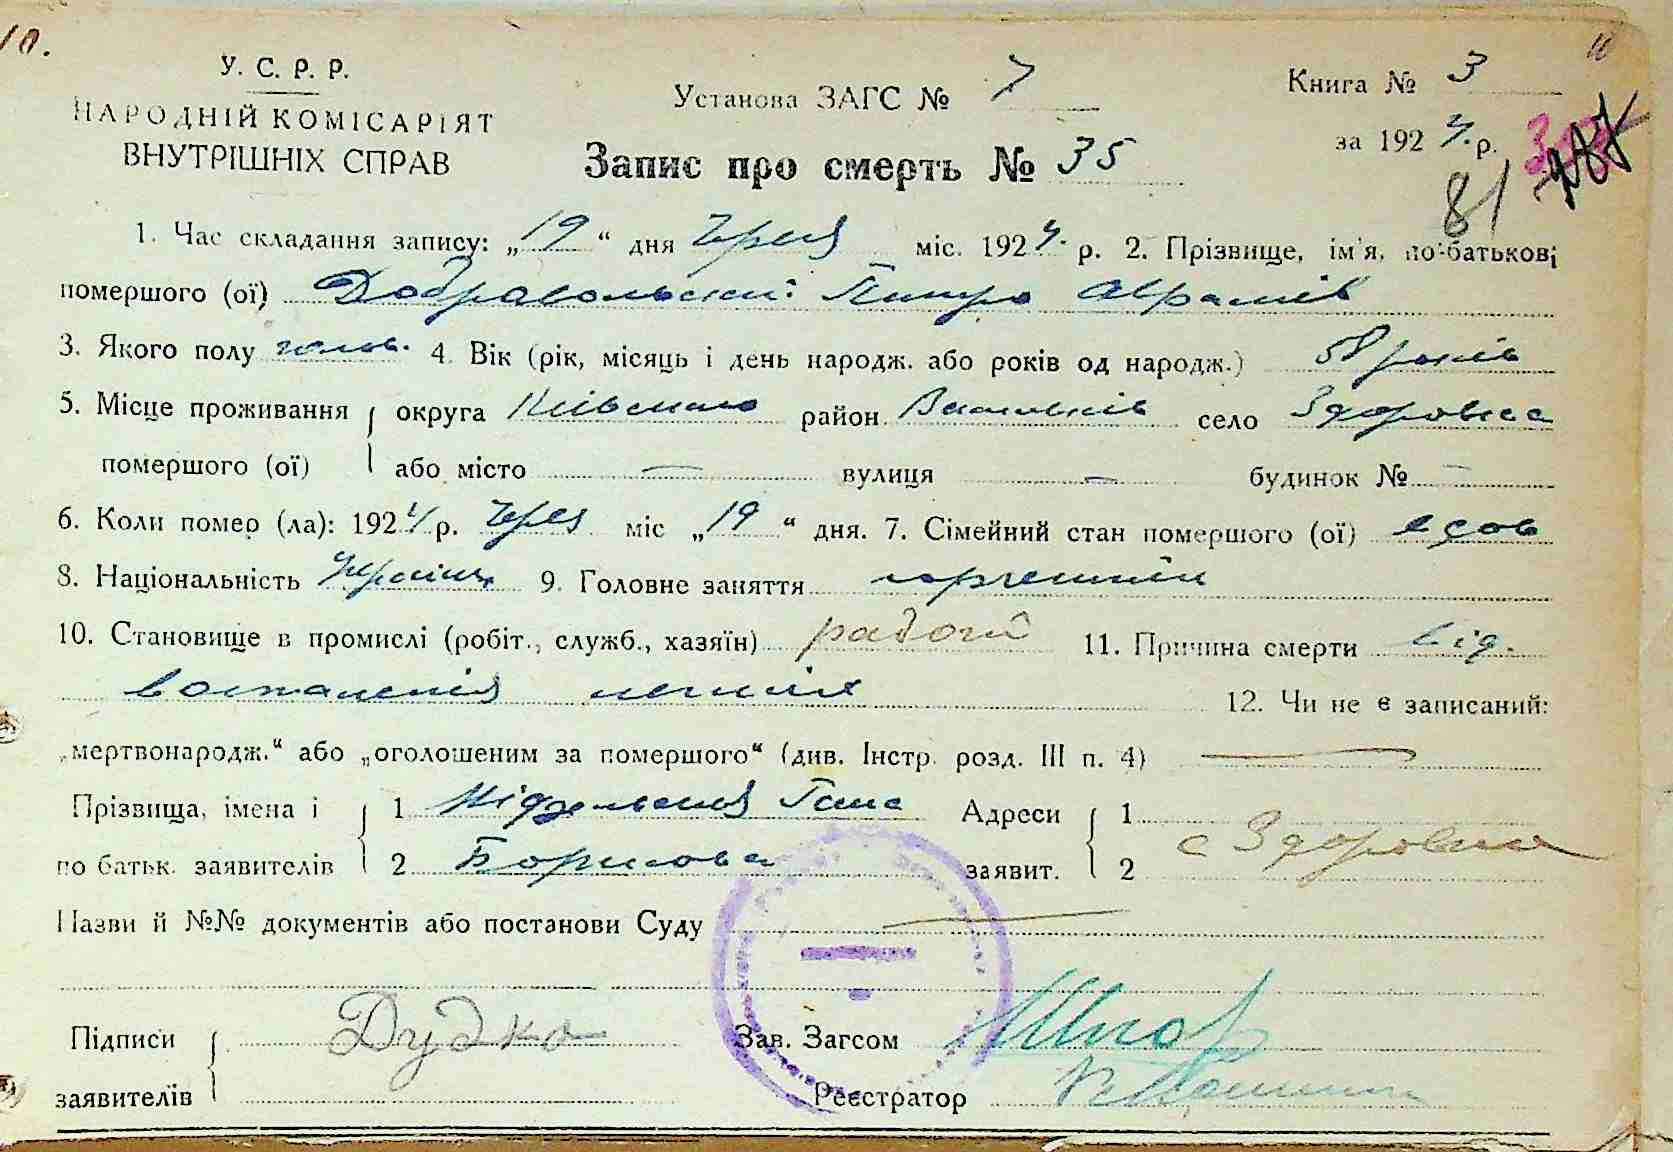 10.
У. С. Р. Р.
НАРОДНІЙ КОМІСАРІЯТ
ВНУТРІШНІХ СПРАВ
Установа ЗАГС № 7
Книга № 3
за 1924 р.
81
Запис про смерть № 35
1. Час складання запису: „19“ дня Червня міс. 1924 р. 2. Прізвище, ім'я, по-батькові
помершого (ої) Добравольский Петро Аврамів
3. Якого полу чолов. 4. Вік (рік, місяць і день народж. або років од народж.) 58 років
5. Місце проживання округа Київського район Васильків село Здоровка
помершого (ої) або місто — вулиця — будинок № —
6. Коли помер (ла): 1924 р. Червня міс „19“ дня. 7. Сімейний стан помершого (ої) вдов
8. Національність Україн. 9. Головне заняття
10. Становище в промислі (робіт., служб., хазяїн) 11. Причина смерти від.
воспаленія легких 12. Чи не є записаний:
„мертвонародж.“ або „оголошеним за помершого“ (див. Інстр. розд. III п. 4) —
Прізвища, імена і 1 Ганна Адреси 1
по батьк. заявителів 2 Борисовна заявит. 2 с Здоровка
Назви й №№ документів або постанови Суду —
Підписи Дудко Зав. Загсом
заявителів Реєстратор